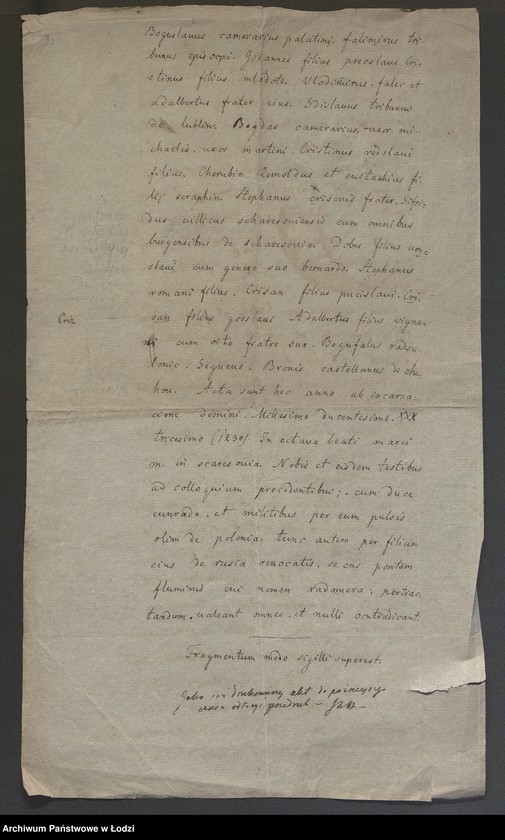 Boguslauus camerarius palatini. falimirus tri-
bunus episcopi. Johannes filius preoslaui Cri-
stinus filius mlodote. Vladimirus. falec et
adalbertus frater eius. Sdislauus tribunus
de lublin. Bogdas camerarius. uxor mi-
chaelis. uxor martini. Cristinus rodslaui
filius. Cherubin Remoldus et eustachius fi-
lij seraphin. Stephanus crisonis frater. Sifri-
dus uillicus scharesouiensis cum omnibus
burgensibus de scharesouia. Dobes filius uoy-
slaui cum genero suo bernardo. Stephanus
romani filius. Crisan filius pucislaui. Cri-
Criz
san filius gosslaui Adalbertus filius wigna-
ni cum uito fratre suo. Bogufalus radsu-
louic. Segneus. Bronis castellanus de che-
hou. Acta sunt hec anno ab incarna-
cione domini. Millesimo ducentesimo. XXX
tricesimo (1230) In octava beati marci
in scaresouia. Nobis et eisdem testibus
ad colloquium procidentibus; cum duce
cunrado. et militibus per eum pulsis
olim de polonia. tunc autem per filium
eius de rusia reuocatis. secus pontem
fluminis cui nomen radomera. pertrac-
tandum. ualeant omnes. et nulli contradicant.
Fragmentum modo sigilli superest.
Jako już drukowany akt do